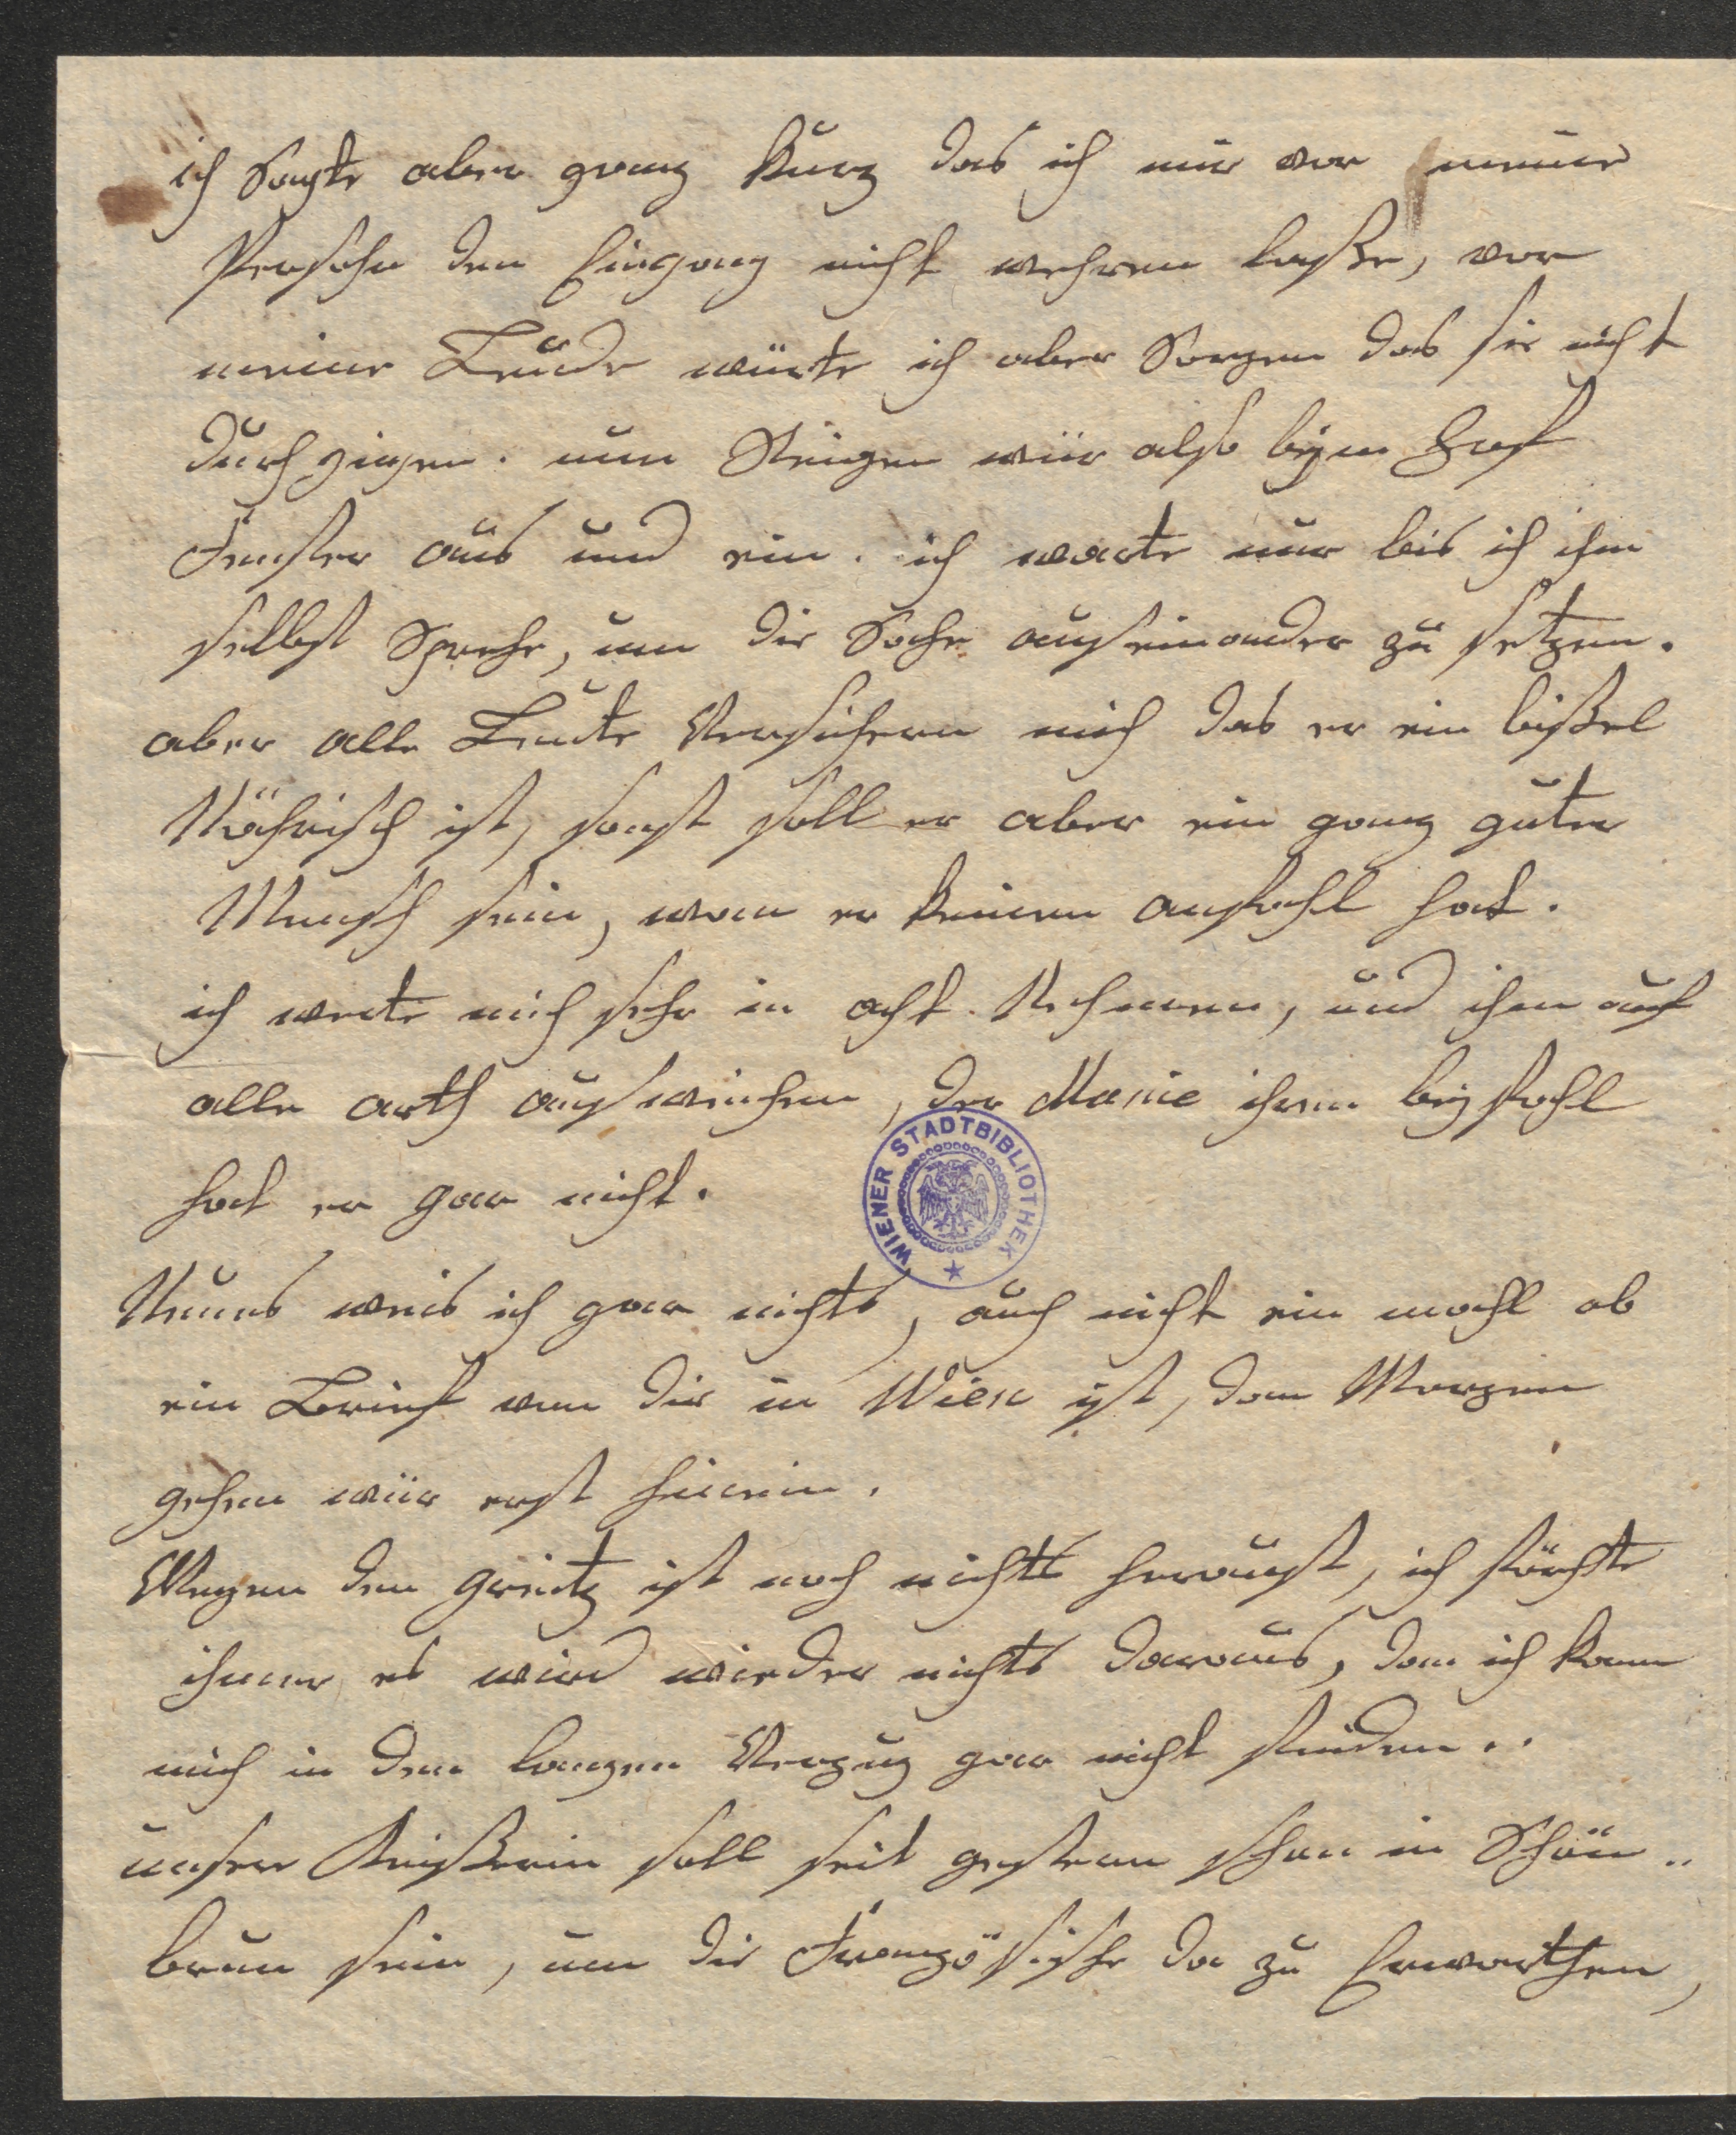 ich Sagte aber ganz kurz das ich mir vor meine
Persohn den Eingang nicht wehren laße, vor
meine Leüde würte ich aber Sorgen das sie nicht
durch gingen. nun Steigen wür also beym Hof
Fenster aus und ein. ich warte nur bis ich ihm
selbst Spreche, um die Sache auseinander zu setzen.
aber alle Leute Versichern mich das er ein bißel
Nährisch ist, sonst soll er aber ein ganz guter
Mensch sein, wan er keinen anfahl hat.
ich werte mich sehr in acht Nehmen, und ihm auf
alle arth ausweichen, der Marie ihren beyfahl
hat er gar nicht.
WIENER STADTBIBLIOTHEK
Neues weis ich gar nichts, auch nicht ein mahl ob
ein Brief von dir in Wien ist, dan Morgen
gehen wür erst hinein.
Wegen den Greitz ist noch nichts herausst, ich förchte
ihmer es wird wieder nichts daraus, dan ich kann
mich in den langen Verzug gar nicht finden..
unsere Keißerin soll seit gestern schon in Schön..
brun sein, um die Französische da zu Erwarthen,